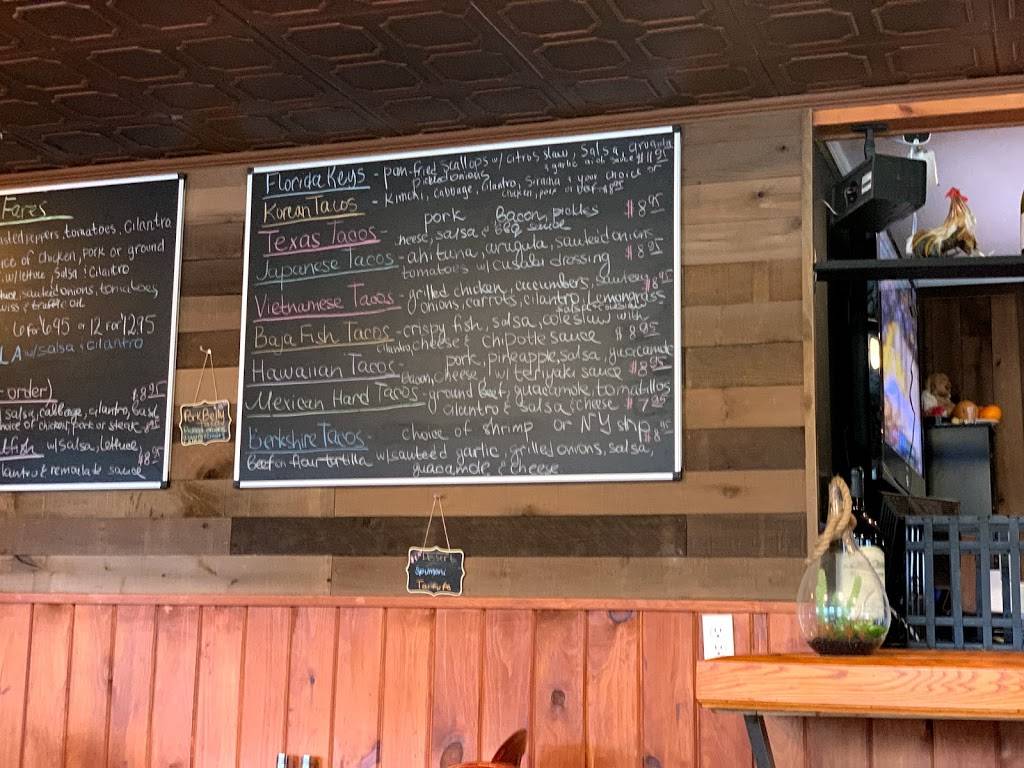 Fares
peppers, tomatoes, cilantro
choice of chicken, pork or ground
w/lettuce, salsa & cilantro
sauteed onions, tomatoes,
swiss & truffle oil
6 for 6.95 or 12 for 12.95
LA w/salsa & cilantro
order) $8.95
salsa, cabbage, cilantro, basil
choice of chicken, pork or steak
fish w/salsa, lettuce,
cilantro & remoulade sauce $8.95
Florida Keys - pan-fried scallops w/ citrus slaw, salsa, arugula
pickled onions & garlic aioli sauce
Korean Tacos - Kimchi, cabbage, cilantro, Siracha & your choice of
chicken, pork or beef
Texas Tacos - pork bacon, pickles $8.95
cheese, salsa & bbq sauce
Japanese Tacos - ahi tuna, arugula, sauteed onions $8.25
tomatoes w/ dressing
Vietnamese Tacos - grilled chicken, cucumbers, sauteed 8.95
onions, carrots, cilantro, lemongrass
Baja Fish Tacos - crispy fish, salsa, coleslaw with
cilantro, cheese & chipotle sauce $8.95
Hawaiian Tacos - pork, pineapple, salsa, guacamole
bacon, cheese w/ teriyaki sauce $8.95
Mexican Hard Tacos - ground beef, guacamole, tomatillos
cilantro & salsa, cheese $7.95
Berkshire Tacos - choice of shrimp or NY strip $8.95
flour tortilla w/sauteed garlic, grilled onions, salsa,
guacamole & cheese
Pork Belly
Spumoni
Tartufo